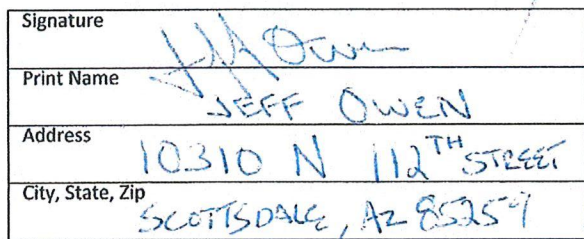 Signature
Print Name
JEFF OWEN
Address
10310 N 112TH STREET
City, State, Zip
SCOTTSDALE, AZ 85259